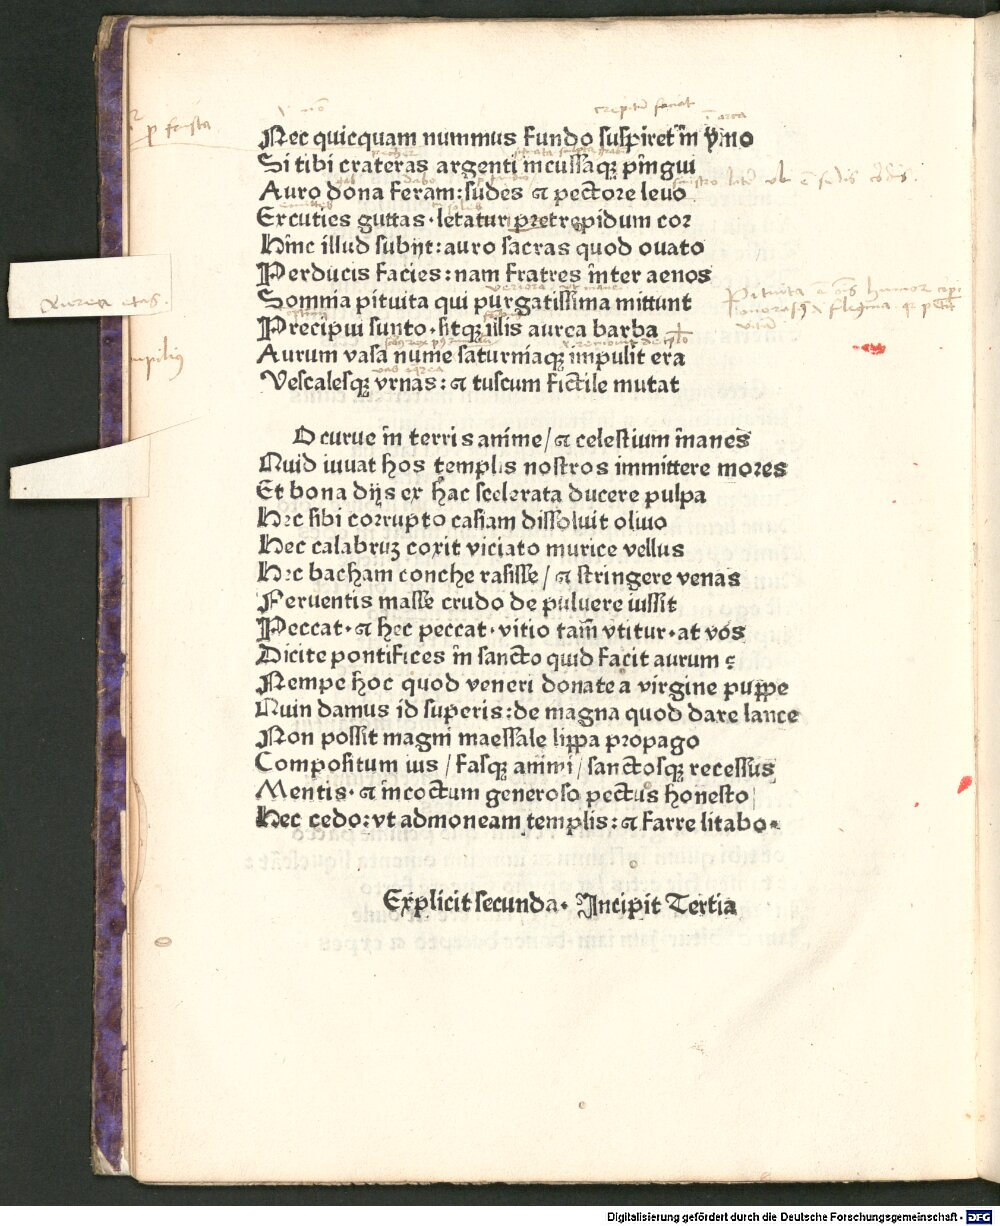 crepitum faciat
Nec quicquam nummus fundo suspiret in ymo
Si tibi crateras argenti incussaqꝫ pingui
Auro dona feram: sudes ⁊ pectore leuo
Excuties guttas · letatur pretrepidum cor
Hinc illud subijt: auro sacras quod ouato
Perducis facies: nam fratres inter aenos
Somnia pituita qui purgatissima mittunt
Precipui sunto · sitqꝫ illis aurea barba
Aurum vasa nume saturniaqꝫ impulit era
Vescalesqꝫ vrnas: ⁊ tuscum fictile mutat
O curue in terris anime / ⁊ celestium inanes
Quid iuuat hos templis nostros immittere mores
Et bona dijs ex hac scelerata ducere pulpa
Hec sibi corrupto casiam dissoluit oliuo
Hec calabruꝫ coxit viciato murice vellus
Hec bacham conche rasisse / ⁊ stringere venas
Feruentis masse crudo de puluere iussit
Peccat · ⁊ hec peccat · vitio tam̃ vtitur · at vos
Dicite pontifices in sancto quid facit aurum ?
Nempe hoc quod veneri donate a virgine puppe
Quin damus id superis: de magna quod dare lance
Non possit magni maessale lippa propago
Compositum ius / fasqꝫ animi / sanctosqꝫ recessus
Mentis · ⁊ incoctum generoso pectus honesto
Hec cedo: vt admoneam templis: ⁊ farre litabo ·
Explicit secunda · Incipit Tertia
Digitalisierung gefördert durch die Deutsche Forschungsgemeinschaft - DFG